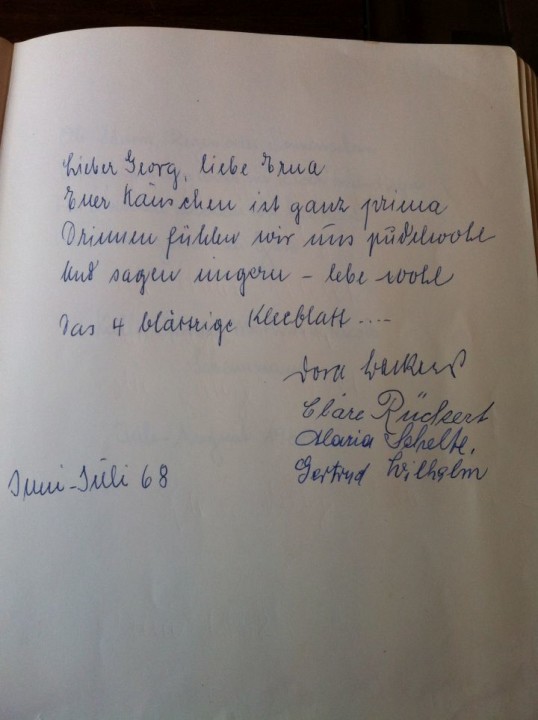 Lieber Georg, liebe Erna
Euer Häuschen ist ganz prima
Drinnen fühlen wir uns pudelwohl
Und sagen ungern – lebe wohl
Das 4 blättrige Kleeblatt ....
Dora
Cläre Rückert
Maria Schelte,
Gertrud Wilhelm
Juni-Juli 68